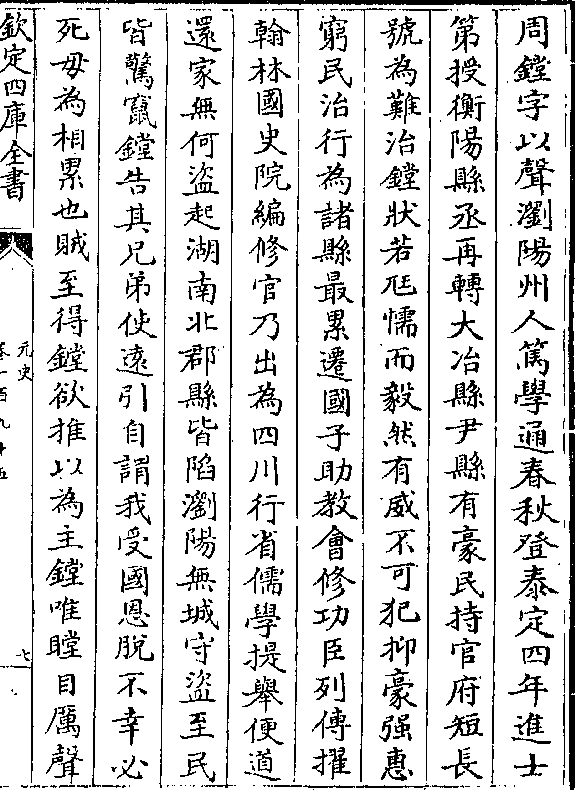 周鏜字以聲瀏陽州人篤學通春秋登泰定四年進士
第授衡陽縣丞再轉大冶縣尹縣有豪民持官府短長
號為難治鏜狀若尫懦而毅然有威不可犯抑豪强惠
窮民治行為諸縣最累遷國子助教會修功臣列傳擢
翰林國史院編修官乃出為四川行省儒學提舉便道
還家無何盜起湖南北郡縣皆陷瀏陽無城守盜至民
皆驚竄鏜告其兄弟使遠引自謂我受國恩脫不幸必
死毋為相累也賊至得鏜欲推以為主鏜唯瞠目厲聲
欽定四庫全書
元史
卷一百九十五
七